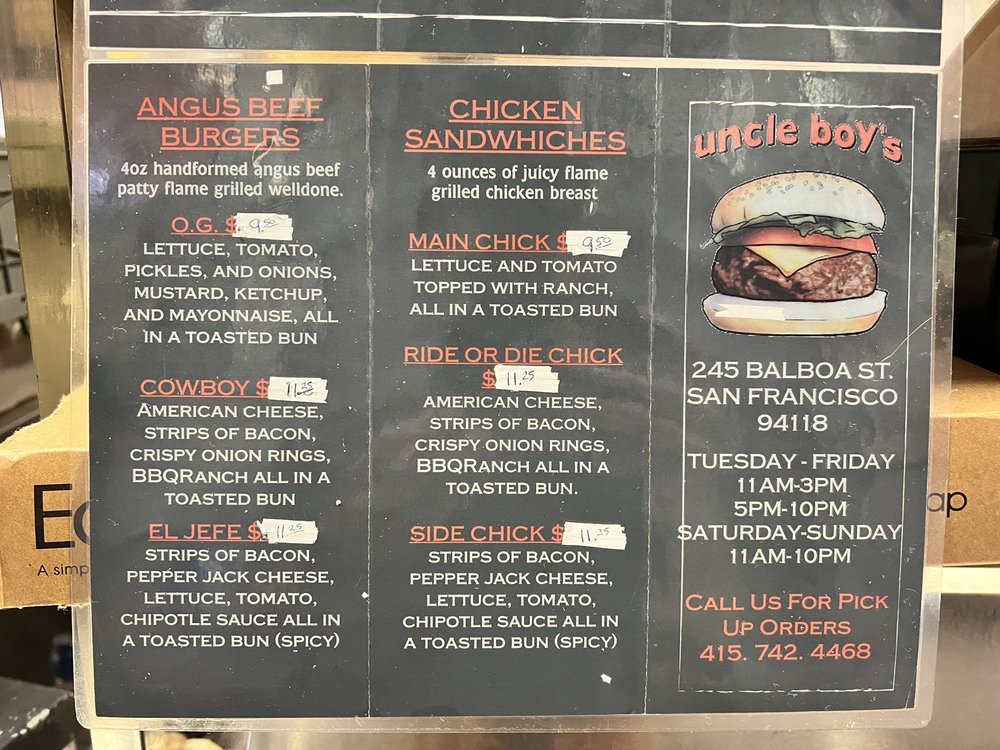 ANGUS BEEF
BURGERS
4oz handformed angus beef
patty flame grilled welldone.
O.G. $ 9.50
LETTUCE, TOMATO,
PICKLES, AND ONIONS,
MUSTARD, KETCHUP,
AND MAYONNAISE, ALL
IN A TOASTED BUN
COWBOY $ 11.25
AMERICAN CHEESE,
STRIPS OF BACON,
CRISPY ONION RINGS,
BBQRANCH ALL IN A
TOASTED BUN
EL JEFE $ 11.25
STRIPS OF BACON,
PEPPER JACK CHEESE,
LETTUCE, TOMATO,
CHIPOTLE SAUCE ALL IN
A TOASTED BUN (SPICY)
CHICKEN
SANDWHICHES
4 ounces of juicy flame
grilled chicken breast
MAIN CHICK $ 9.50
LETTUCE AND TOMATO
TOPPED WITH RANCH,
ALL IN A TOASTED BUN
RIDE OR DIE CHICK
$ 11.25
AMERICAN CHEESE,
STRIPS OF BACON,
CRISPY ONION RINGS,
BBQRANCH ALL IN A
TOASTED BUN.
SIDE CHICK $ 11.25
STRIPS OF BACON,
PEPPER JACK CHEESE,
LETTUCE, TOMATO,
CHIPOTLE SAUCE ALL IN
A TOASTED BUN (SPICY)
uncle boy's
245 BALBOA ST.
SAN FRANCISCO
94118
TUESDAY - FRIDAY
11AM-3PM
5PM-10PM
SATURDAY-SUNDAY
11AM-10PM
CALL US FOR PICK
UP ORDERS
415. 742. 4468
A simp
ap